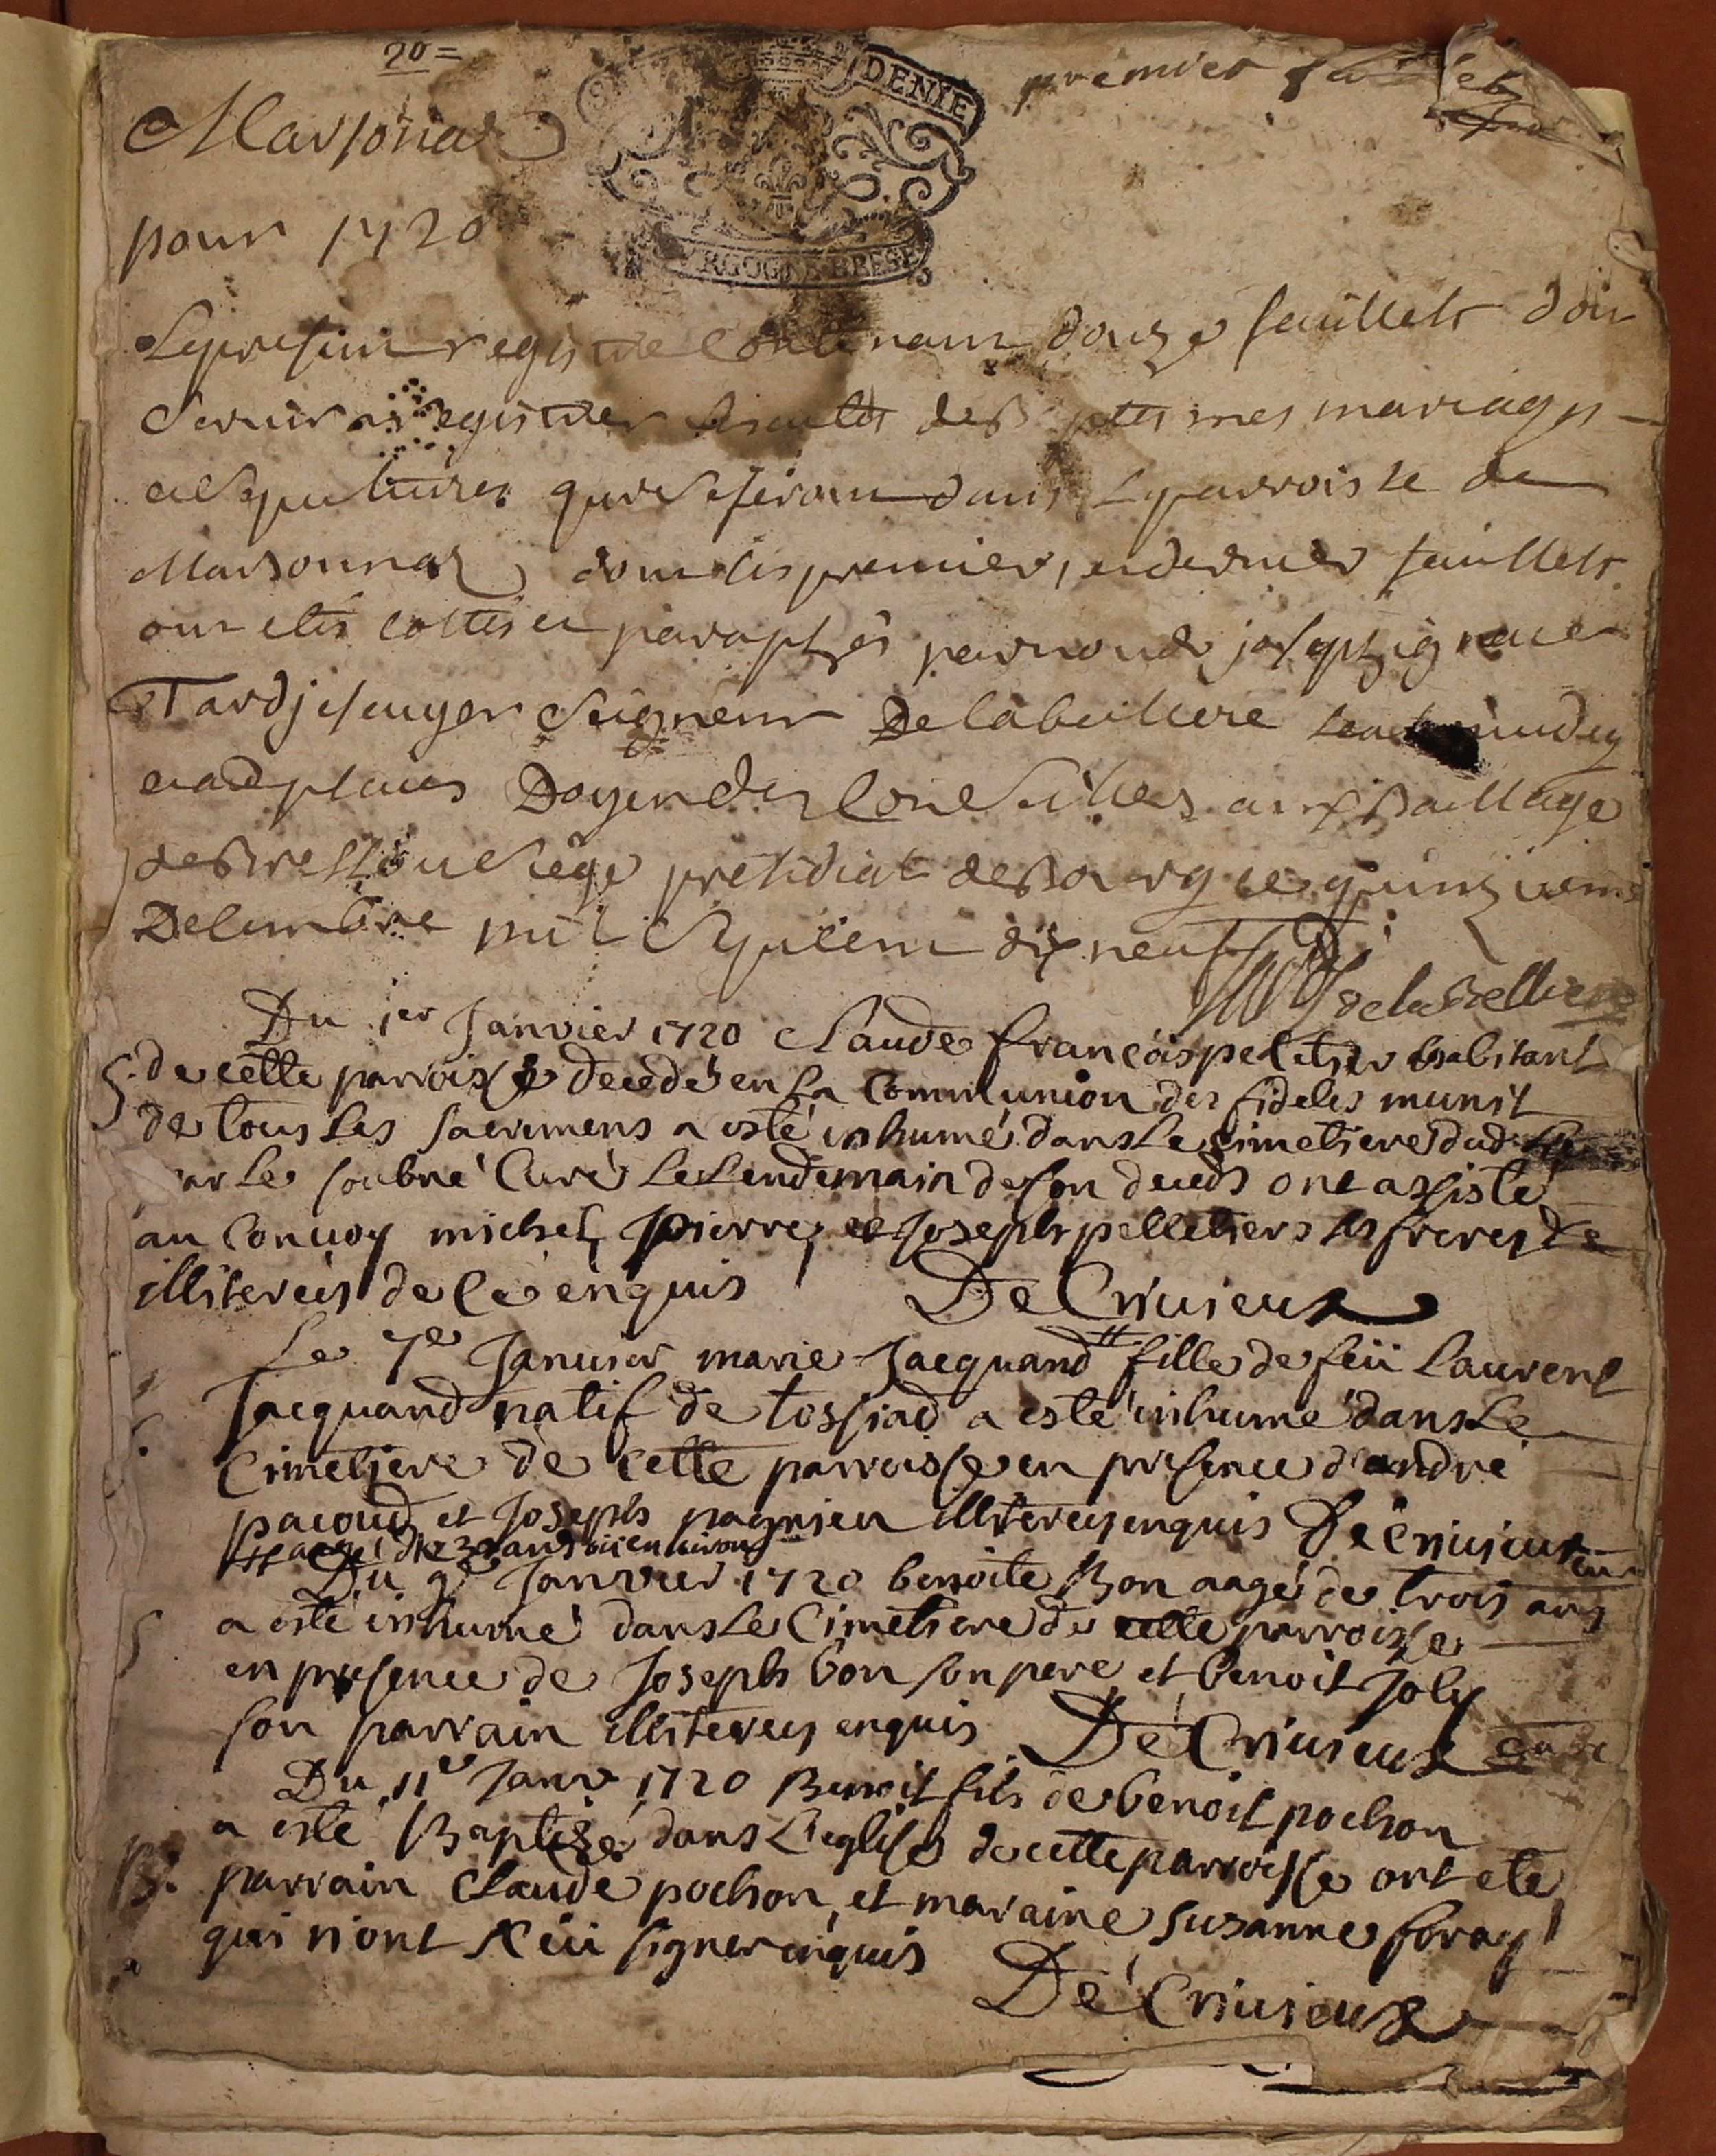 20=
premier feuillet
Marsonas
DENIE
pour 1720
BRESSE
Le present registre Contenant douze feuillets doit
Servir a registrer les actes des baptesmes mariages
et sepultures qui se feront dans la parroisse de
Marsonnas, dont les premier, et dernier feuillets
ont etés cottés et paraphés par nous joseph ignace
Tardy escuyer Seigneur De la belliere
Doyen des Conseillers au Bailliage
de Bresse et siege presidial de Bourg ce quinzieme
Decembre mil Sept cent dix neuf
de la Belliere
Du 1er Janvier 1720 Claude françois peletier habitant
S. de cette parroisse decedé en la Communion des fideles munit
de tous Les sacremens a esté inhumé dans Le cimetiere dud
par Le soubné Curé Le Lendemain de son deceds ont assisté
au Convoy michel, pierre, et Joseph pelletiers ses freres
illiterés de ce enquis DeCriuieux
Le 7e Januier marie Jacquand fille de feü Laurent
Jacquand natif de tossiad a esté inhumé dans Le
Cimetiere de cette parroisse en presence d'andré
pacoud et Joseph pagnieu illiterés enquis DeCriuieux
aagé de 30 ans ou environ
Du 9e Janvier 1720 benoite Bon aagé de trois ans
S a esté inhumé dans Le Cimetiere de cette parroisse
en presence de Joseph bon son pere et benoit Joly
son parrain illiterés enquis DéCriuieux curé
Du 11e Janv 1720 Benoit fils de benoit pochon
a esté Baptizé dans L'eglise de cette parroisse ont eté
B. parrain Claude pochon, et maraine susanne foray
qui n'ont sceü signer enquis
DéCriuieux